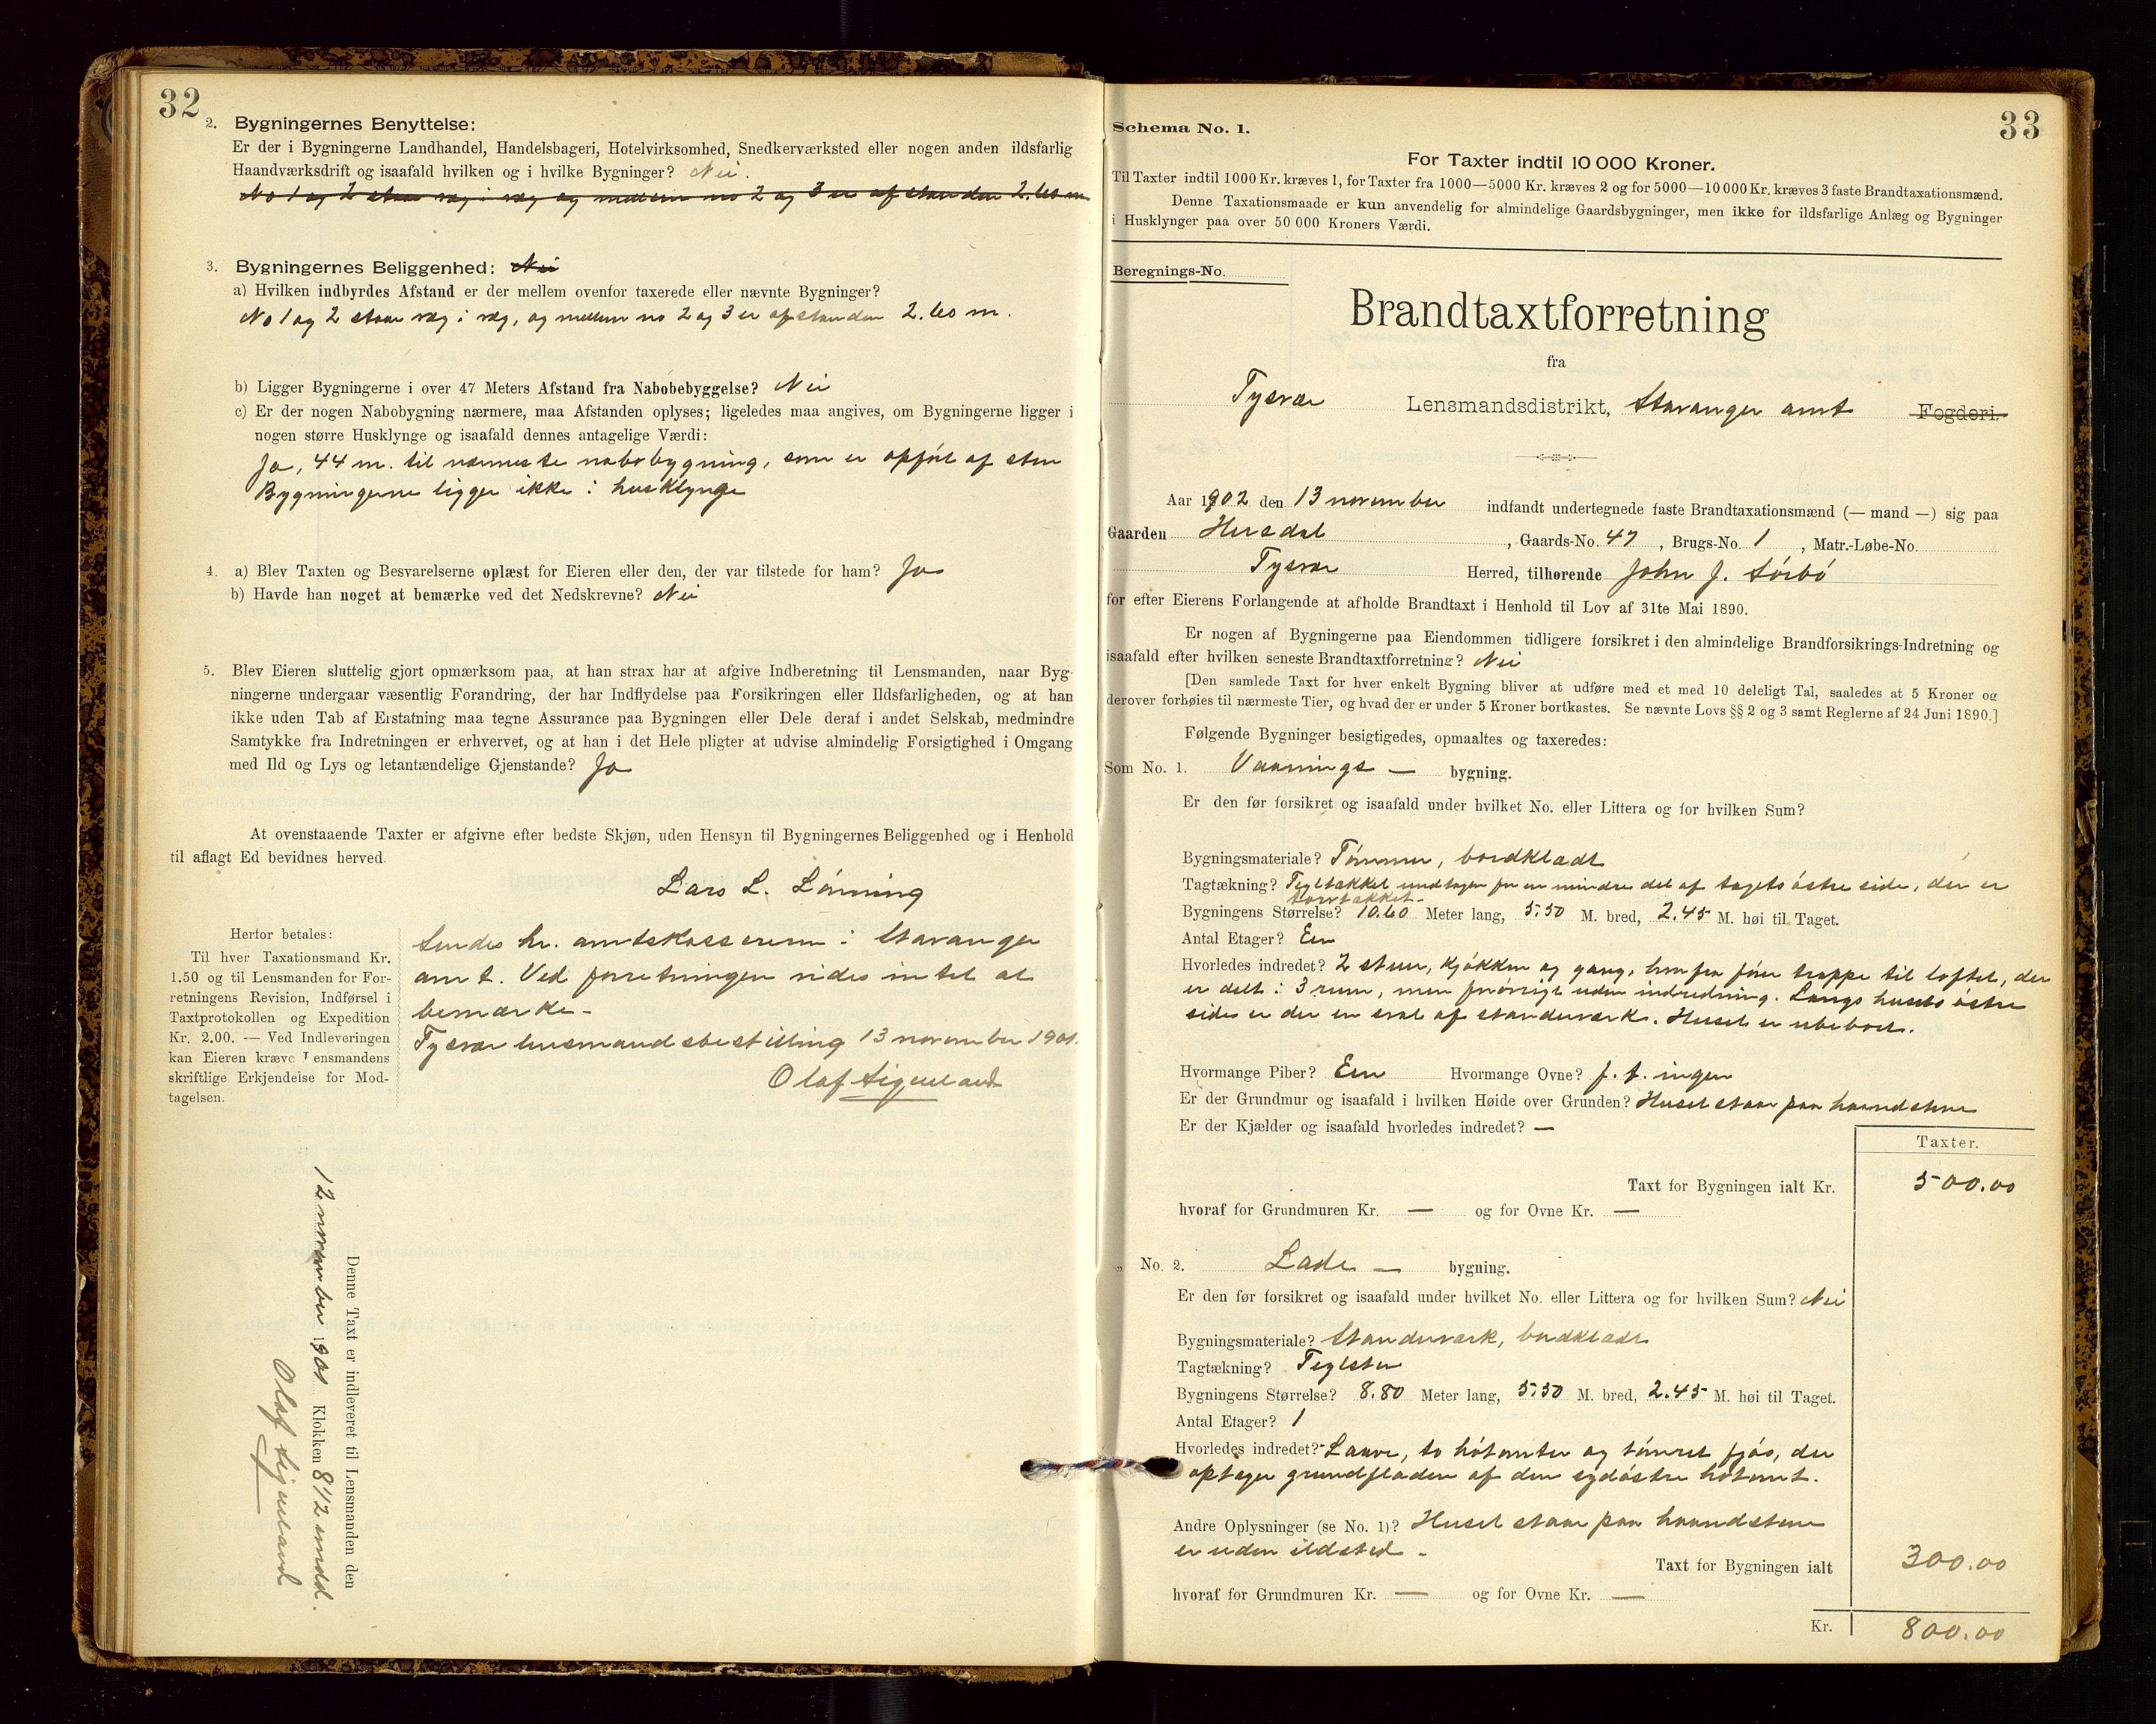 32
2. Bygningernes Benyttelse:
Er der i Bygningerne Landhandel, Handelsbageri, Hotelvirksomhed, Snedkerværksted eller nogen anden ildsfarlig
Haandværksdrift og isaafald hvilken og i hvilke Bygninger? Nei.
No 1 og 2 staar væg i væg og mellem no 2 og 3 er afstanden 2.60 m
3. Bygningernes Beliggenhed: Nei
a) Hvilken indbyrdes Afstand er der mellem ovenfor taxerede eller nævnte Bygninger?
No 1 og 2 staar væg i væg, og mellem no 2 og 3 er afstanden 2.60 m.
b) Ligger Bygningerne i over 47 Meters Afstand fra Nabobebyggelse? Nei
c) Er der nogen Nabobygning nærmere, maa Afstanden oplyses; ligeledes maa angives, om Bygningerne ligger i
nogen større Husklynge og isaafald dennes antagelige Værdi:
Ja, 44 m. til nærmeste nabobygning, som er opført af sten
Bygningerne ligger ikke i husklynge
4. a) Blev Taxten og Besvarelserne oplæst for Eieren eller den, der var tilstede for ham? Ja
b) Havde han noget at bemærke ved det Nedskrevne? Nei
5. Blev Eieren sluttelig gjort opmærksom paa, at han strax har at afgive Indberetning til Lensmanden, naar Byg-
ningerne undergaar væsentlig Forandring, der har Indflydelse paa Forsikringen eller Ildsfarligheden, og at han
ikke uden Tab af Erstatning maa tegne Assurance paa Bygningen eller Dele deraf i andet Selskab, medmindre
Samtykke fra Indretningen er erhvervet, og at han i det Hele pligter at udvise almindelig Forsigtighed i Omgang
med Ild og Lys og letantændelige Gjenstande? Ja
At ovenstaaende Taxter er afgivne efter bedste Skjøn, uden Hensyn til Bygningernes Beliggenhed og i Henhold
til aflagt Ed bevidnes herved.
Lars L. Lønning
Herfor betales:
Til hver Taxationsmand Kr.
1.50 og til Lensmanden for For-
retningens Revision, Indførsel i
Taxtprotokollen og Expedition
Kr. 2.00. — Ved Indleveringen
kan Eieren kræve Lensmandens
skriftlige Erkjendelse for Mod-
tagelsen.
Sendes hr. amtskassereren i Stavanger
amt. Ved forretningen vides intet at
bemærke.
Tysvær lensmandsbestilling 13 november 1901.
Olaf Sigueland
Denne Taxt er indleveret til Lensmanden den
12 november 1901 Klokken 8 1/2 emdd.
Olaf Sigueland
33
Schema No. 1.
For Taxter indtil 10 000 Kroner.
Til Taxter indtil 1000 Kr. kræves 1, for Taxter fra 1000—5000 Kr. kræves 2 og for 5000—10 000 Kr. kræves 3 faste Brandtaxationsmænd.
Denne Taxationsmaade er kun anvendelig for almindelige Gaardsbygninger, men ikke for ildsfarlige Anlæg og Bygninger
i Husklynger paa over 50 000 Kroners Værdi.
Beregnings-No.
Brandtaxtforretning
fra
Tysvær Lensmandsdistrikt, Stavanger amt Fogderi.
Aar 1902 den 13 november indfandt undertegnede faste Brandtaxationsmænd (— mand —) sig paa
Gaarden Hersdal, Gaards-No. 47, Brugs-No. 1, Matr.-Løbe-No.
Tysvær Herred, tilhørende John J. Sørbø
for efter Eierens Forlangende at afholde Brandtaxt i Henhold til Lov af 31te Mai 1890.
Er nogen af Bygningerne paa Eiendommen tidligere forsikret i den almindelige Brandforsikrings-Indretning og
isaafald efter hvilken seneste Brandtaxtforretning? Nei
[Den samlede Taxt for hver enkelt Bygning bliver at udføre med et med 10 deleligt Tal, saaledes at 5 Kroner og
derover forhøies til nærmeste Tier, og hvad der er under 5 Kroner bortkastes. Se nævnte Lovs §§ 2 og 3 samt Reglerne af 24 Juni 1890.]
Følgende Bygninger besigtigedes, opmaaltes og taxeredes:
Som No. 1. Vaanings — bygning.
Er den før forsikret og isaafald under hvilket No. eller Littera og for hvilken Sum?
Bygningsmateriale? Tømmer, bordklædt
Tagtækning? Tegltækket undtagen for en mindre del af tagets østre side, der er
torvtækket.
Bygningens Størrelse? 10.60 Meter lang, 5.50 M. bred, 2.45 M. høi til Taget.
Antal Etager? Een
Hvorledes indredet? 2 stuer, kjøkken og gang, hvorfra fører trappe til loftet, der
er delt i 3 rum, men forøvrigt uden indredning. Langs husets østre
side er der en sval af standerværk. Huset er ubeboet.
Hvormange Piber? Een Hvormange Ovne? f. t. ingen
Er der Grundmur og isaafald i hvilken Høide over Grunden? Huset staar paa haandstene
Er der Kjælder og isaafald hvorledes indredet? —
Taxter.
Taxt for Bygningen ialt Kr. 500.00
hvoraf for Grundmuren Kr. — og for Ovne Kr. —
„ No. 2. Lade — bygning.
Er den før forsikret og isaafald under hvilket No. eller Littera og for hvilken Sum? Nei
Bygningsmateriale? Standerværk, bordklædt
Tagtækning? Teglsten
Bygningens Størrelse? 8.80 Meter lang, 5.50 M. bred, 2.45 M. høi til Taget.
Antal Etager? 1
Hvorledes indredet? Laave, to høtomter og tømret fjøs, der
optager grundfladen af den sydøstre høtomt.
Andre Oplysninger (se No. 1)? Huset staar paa haandstene
er uden ildsted.
Taxt for Bygningen ialt 300.00
hvoraf for Grundmuren Kr. — og for Ovne Kr. —
Kr. 800.00